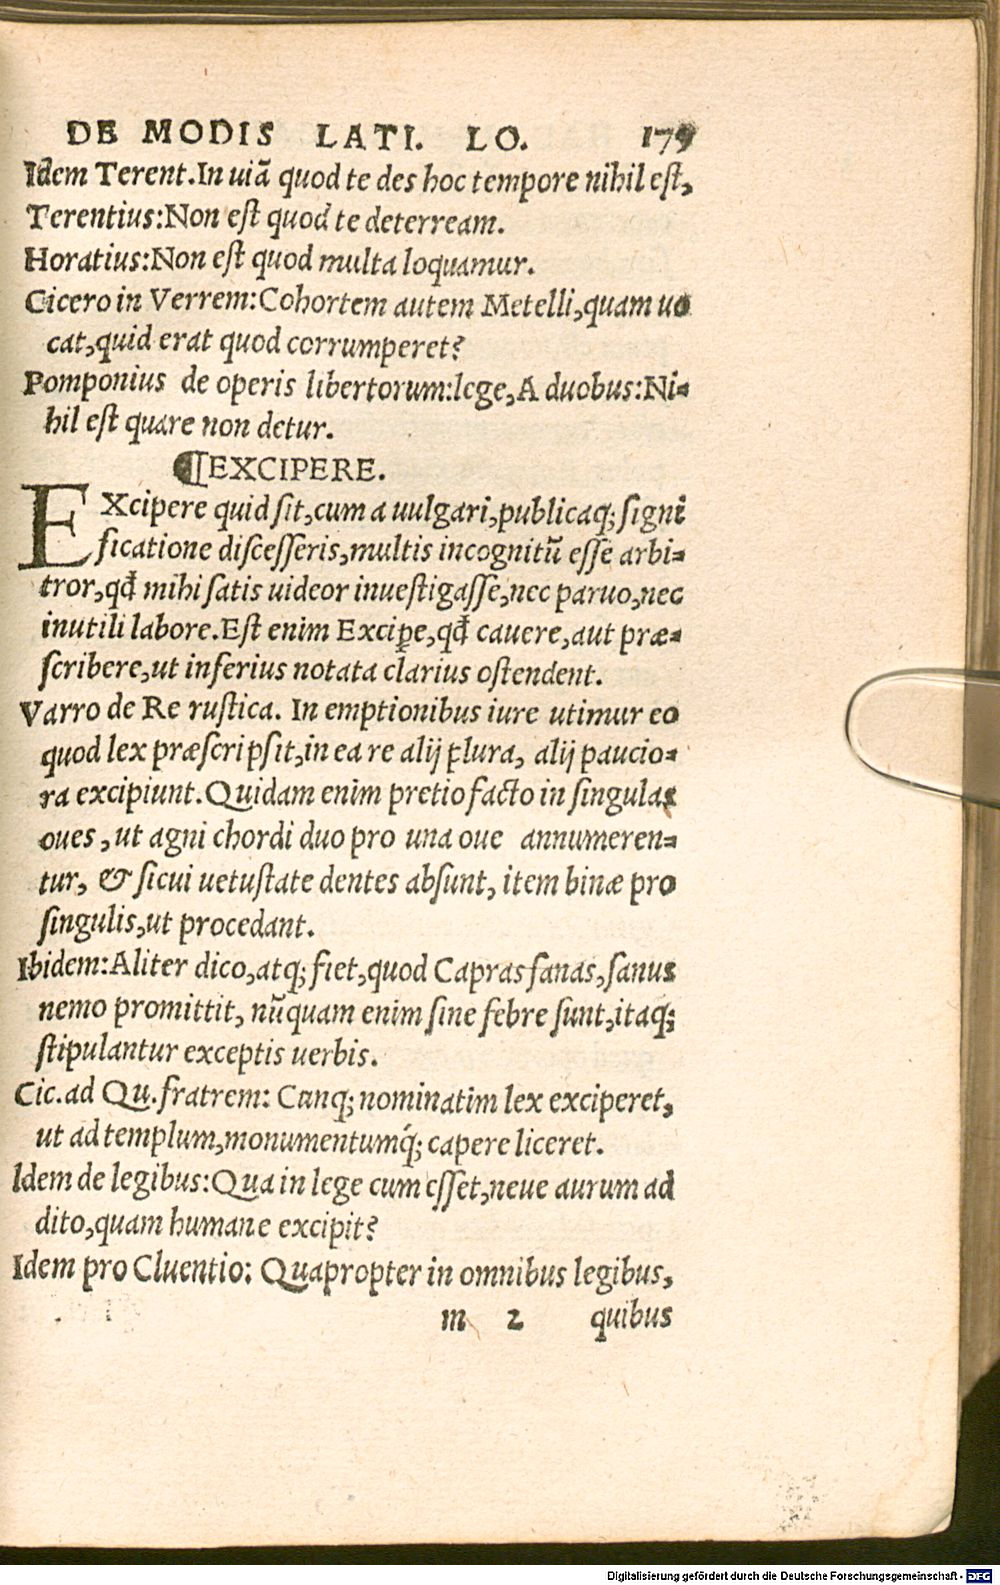 DE MODIS LATI. LO. 179
Idem Terent.In uiā quod te des hoc tempore nihil est,
Terentius:Non est quod te deterream.
Horatius:Non est quod multa loquamur.
Cicero in Verrem:Cohortem autem Metelli,quam uo
cat,quid erat quod corrumperet?
Pomponius de operis libertorum:lege,A duobus:Ni-
hil est quare non detur.
¶EXCIPERE.
EXcipere quid sit,cum a uulgari,publicaq; signi
ficatione discesseris,multis incognitū esse arbi-
tror,qđ mihi satis uideor inuestigasse,nec paruo,nec
inutili labore.Est enim Exciꝑe,qđ cauere,aut præ-
scribere,ut inferius notata clarius ostendent.
Varro de Re rustica. In emptionibus iure utimur eo
quod lex præscripsit,in ea re alij plura, alij paucio-
ra excipiunt.Quidam enim pretio facto in singulas
oues ,ut agni chordi duo pro una oue annumeren-
tur, & sicui uetustate dentes absunt, item binæ pro
singulis,ut procedant.
Ibidem:Aliter dico,atq; fiet,quod Capras sanas,sanus
nemo promittit, nūquam enim sine febre sunt,itaq;
stipulantur exceptis uerbis.
Cic.ad Qu.fratrem: Cunq; nominatim lex exciperet,
ut ad templum,monumentumq́; capere liceret.
Idem de legibus:Qua in lege cum esset,neue aurum ad
dito,quam humane excipit?
Idem pro Cluentio: Quapropter in omnibus legibus,
m 2 quibus
Digitalisierung gefördert durch die Deutsche Forschungsgemeinschaft - DFG